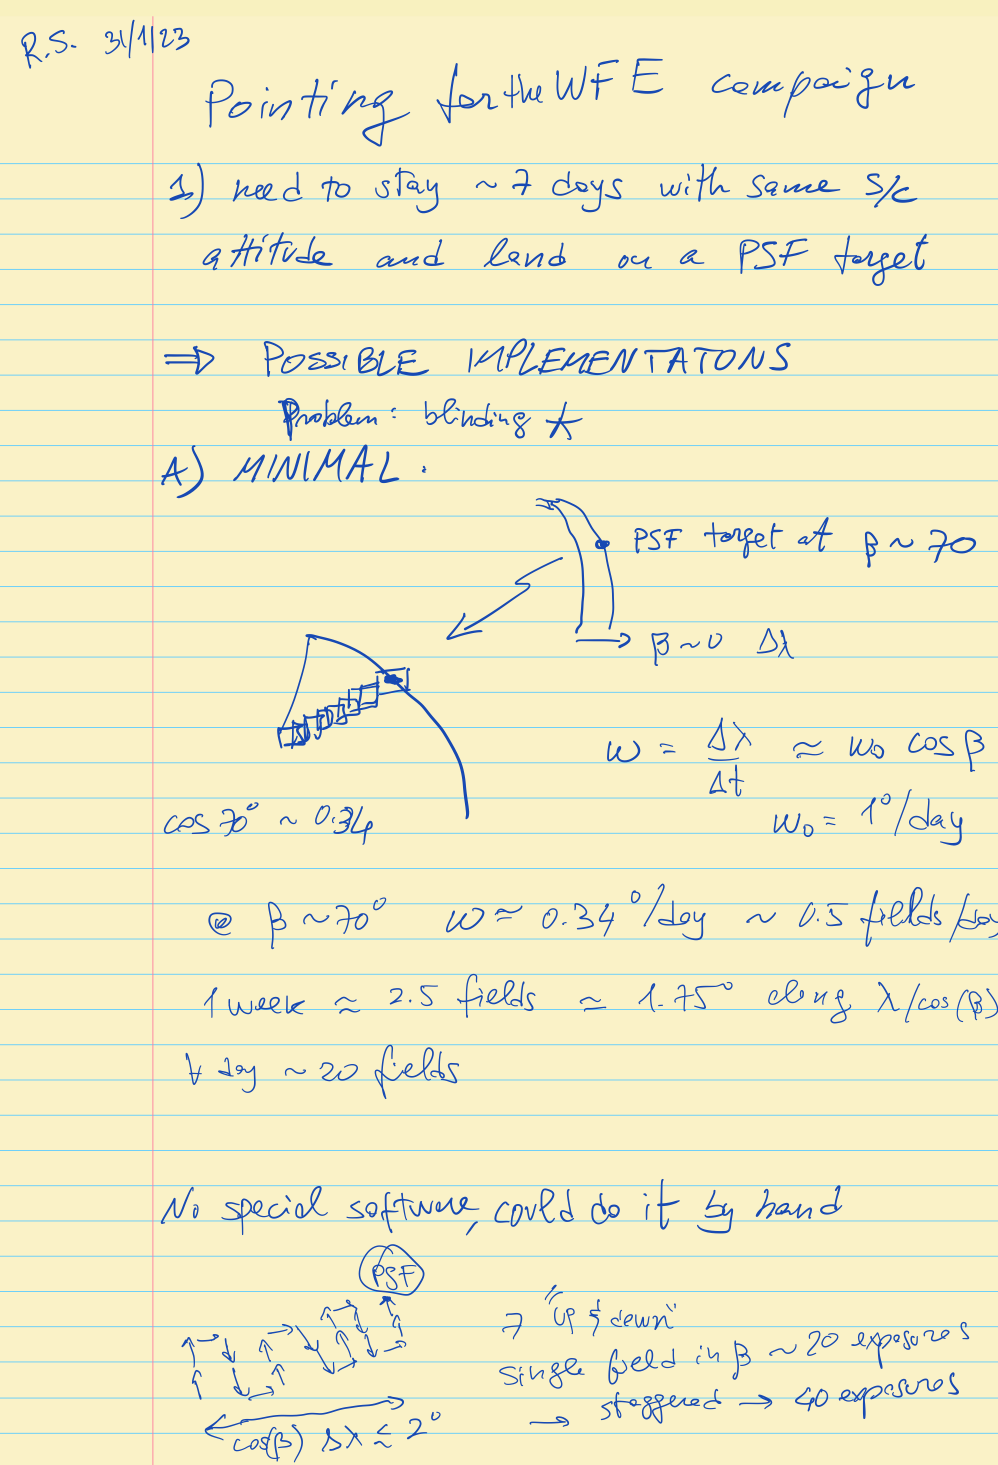 R.S. 31/1/23
Pointing for the WFE campaign
1) need to stay ~ 7 days with same s/c
attitude and land on a PSF target
⇒ POSSIBLE IMPLEMENTATONS
Problem: blinding ★
A) MINIMAL.
PSF target at β ~ 70
β ~ 0 Δλ
ω = Δλ/Δt ≈ ω₀ cos β
cos 70° ~ 0.34
ω₀ = 1°/day
@ β ~ 70° ω ≈ 0.34°/day ~ 0.5 fields/day
1 week ≈ 2.5 fields ≃ 1.75° along λ/cos(β)
∀ day ~ 20 fields
No special software, could do it by hand
PSF
7 "up & down"
single field in β ~ 20 exposures
→ staggered → 40 exposures
cos(β) Δλ ≲ 2°